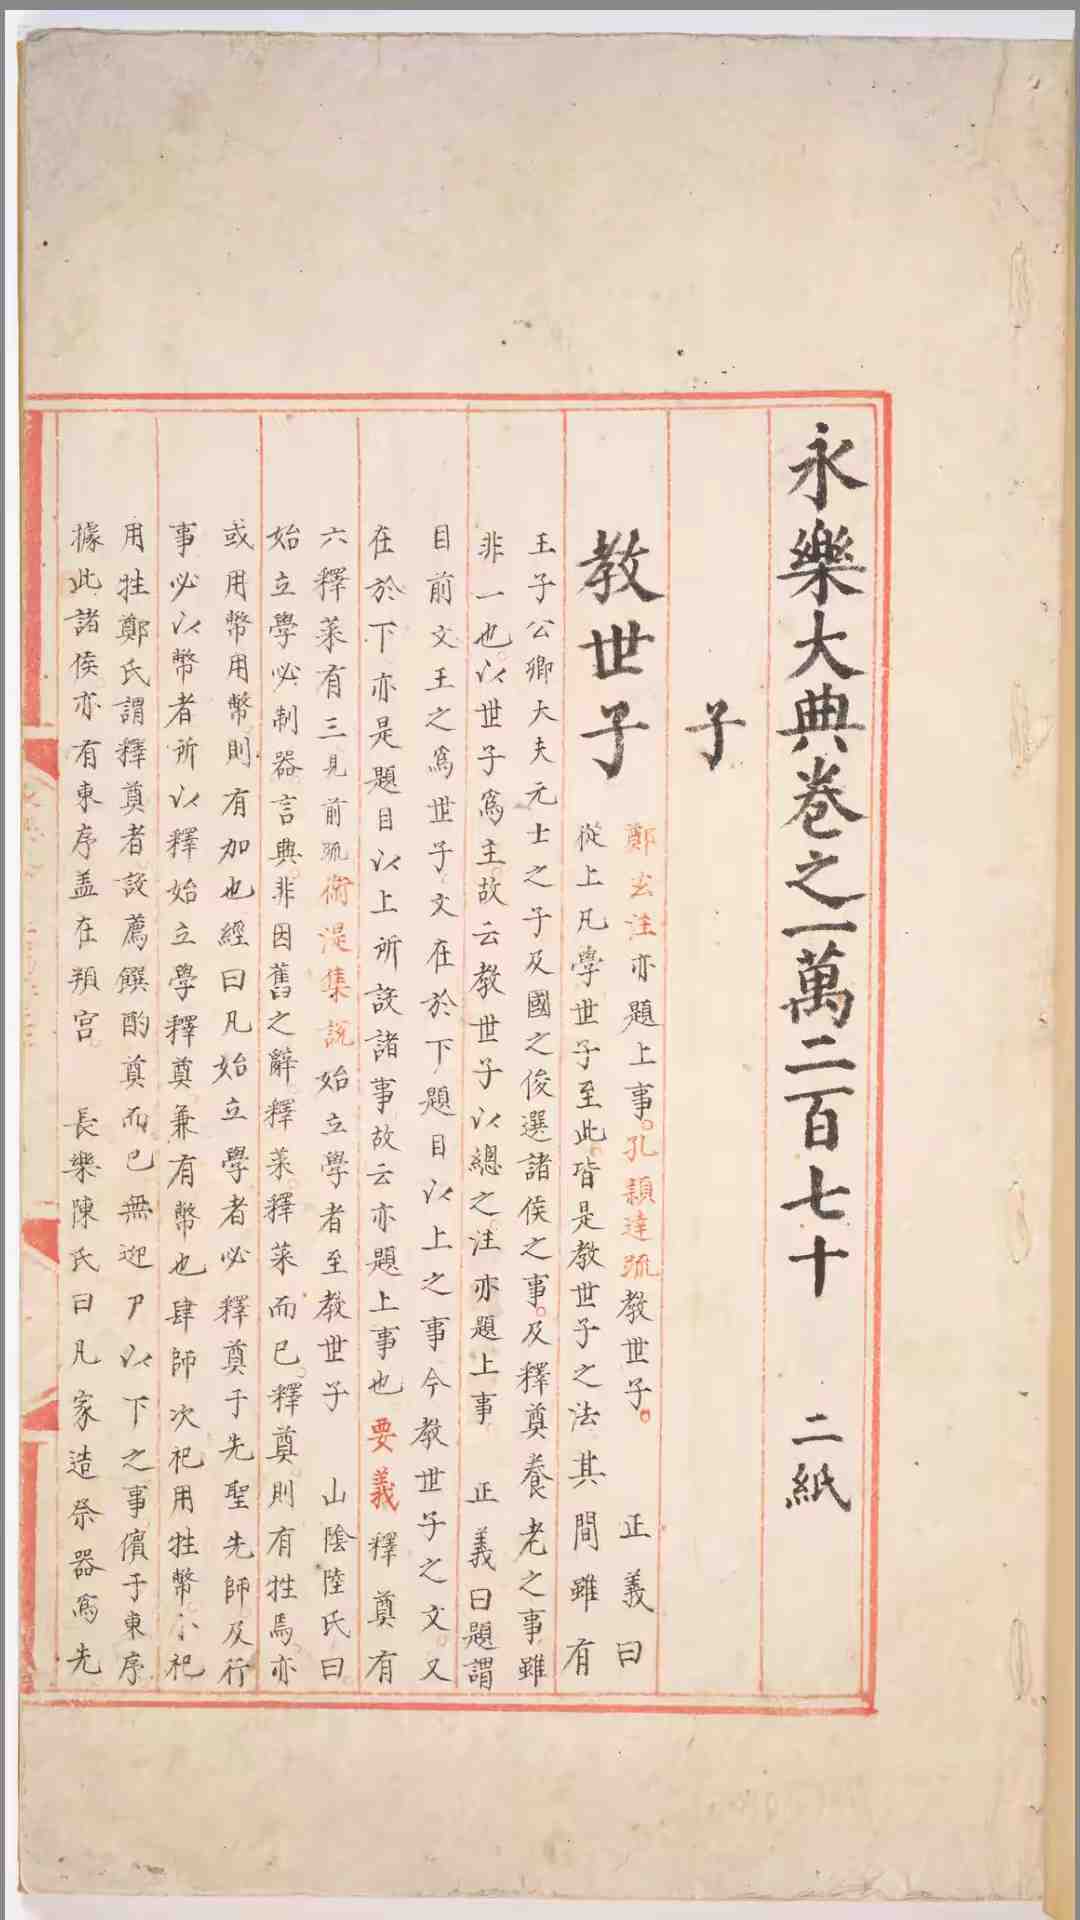 永樂大典卷之一萬二百七十 二紙
子
教世子
鄭玄注亦題上事。孔穎達疏教世子。 正義曰
從上凡學世子至此皆是教世子之法其間雖有
王子公卿大夫元士之子及國之俊選諸侯之事。及釋奠養老之事雖
非一也。以世子爲主。故云教世子以總之注亦題上事 正義曰題謂
目前文王之爲世子文在於下題目以上之事今教世子之文。又
在於下亦是題目以上所設諸事故云亦題上事也要義釋奠有
六釋菜有三見前疏衛湜集說始立學者至教世子 山陰陸氏曰
始立學必制器言典。非因舊之辭。釋菜。釋菜而已。釋奠則有牲焉。亦
或用幣用幣則有加也經曰凡始立學者必釋奠于先聖先師及行
事必以幣者所以釋始立學釋奠兼有幣也肆師次祀用牲幣。小祀
用牲鄭氏謂釋奠者設薦饌酌奠而已無迎尸以下之事儐于東序
據此諸侯亦有東序盖在頖宮。 長樂陳氏曰凡家造祭器爲先